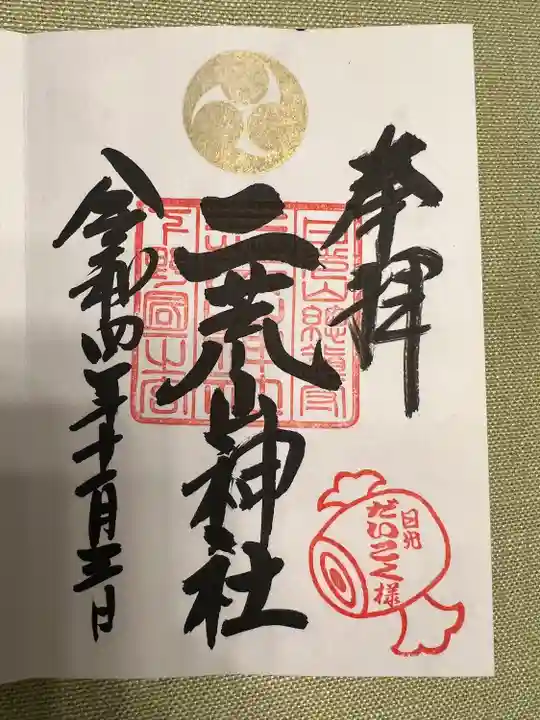 奉拝
二荒山神社
令和四年十一月五日
日光
だいこく様